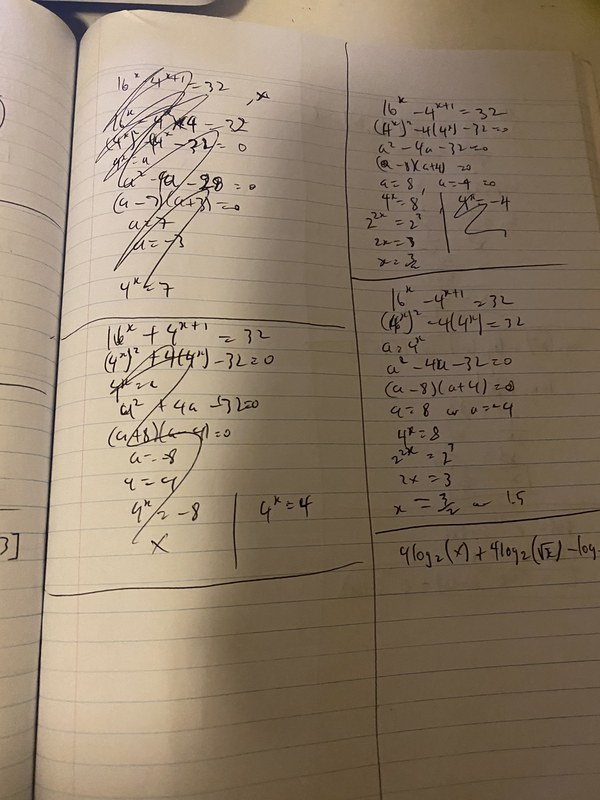 16^x - 4^{x+1} = 32
16^x - 4^x × 4 - 32
(4^x)² - 4^x - 32 = 0
4^x = a
a² - 4a - 28 = 0
(a - 7)(a + 3) = 0
a = 7
a = -3
4^x = 7
16^x + 4^{x+1} = 32
(4^x)² + 4(4^x) - 32 = 0
4^x = a
a² + 4a - 32 = 0
(a + 8)(a - 4) = 0
a = -8
a = 4
4^x = -8 | 4^x = 4
×
3]
16^x - 4^{x+1} = 32
(4^x)² - 4(4^x) - 32 = 0
a² - 4a - 32 = 0
(a - 8)(a + 4) = 0
a = 8, a = -4 = 0
4^x = 8 | 4^x = -4
2^{2x} = 2^3
2x = 3
x = 3/2
16^x - 4^{x+1} = 32
(4^x)² - 4(4^x) = 32
a = 4^x
a² - 4a - 32 = 0
(a - 8)(a + 4) = 0
a = 8 or a = -4
4^x = 8
2^{2x} = 2^3
2x = 3
x = 3/2 or 1.5
4log₂(x) + 4log₂(√x) - log